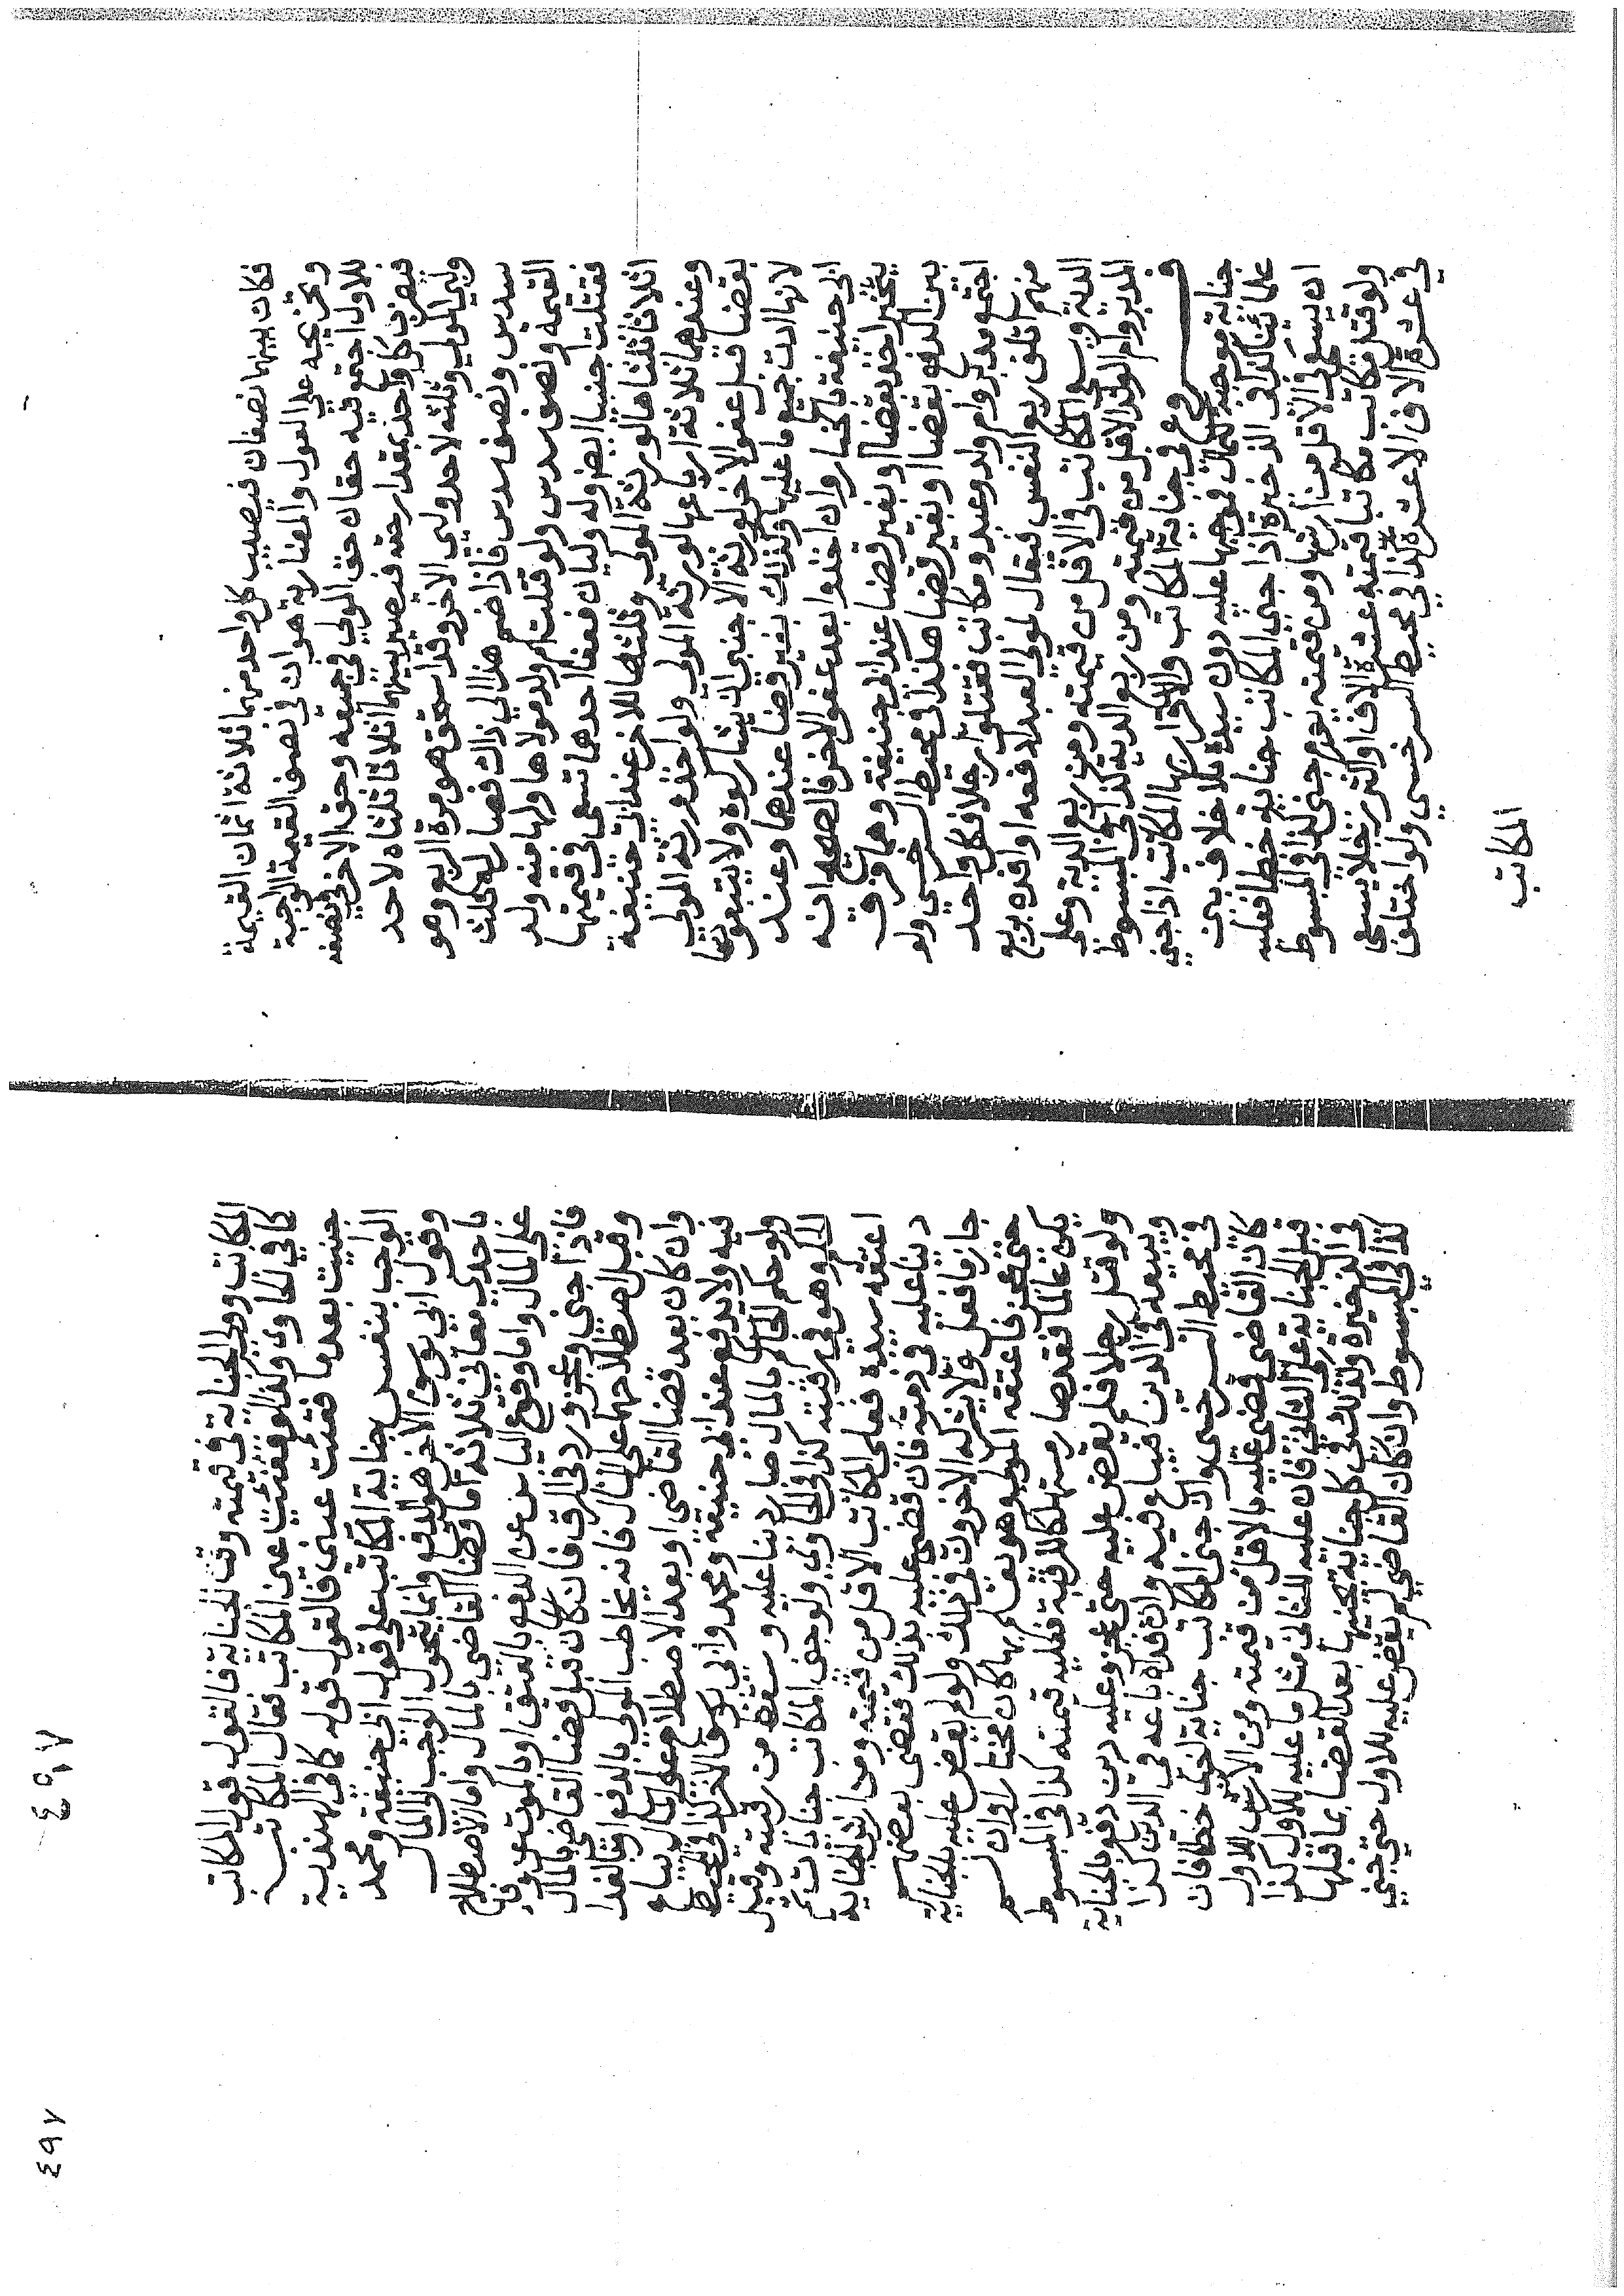 فكان بينهما نصفان فيصيب كل واحد منهما ثلاثة اثمان القيمة
وتخريجه على العول والمضاربة هو ان في نصف القيمة الواجبة
للاول اجتمع فيه حقان حق المولى في جميعه وحق الاخر في نصفه
فيضرب كل واحد بمقدار حقه فيصير بينهما اثلاثا ثلثاه لاحد
وليي المولى وثلثه لاحد ولي الاخر وقد استحق هو مرة الربع وهو
سدس ونصف سدس فاذا ضم هذا الى ذلك فصار له ثلث
القيمة ونصف سدس ولو قتلت ام ولد مولاها ولها منه ولد
فقتلت اجنبيا ايضا وله وليان فعفا احدهما تسعى في قيمتها
اثلاثا ثلثاها لورثة المولى وثلثها للاخر عند ابي حنيفة
وعندهما ثلاثة ارباعها لورثة المولى ولو اخذ ورثة المولى
بقضا قبل عفو الاخر لورثة الاجنبي ان يشاركوه ولا يتبعونها
لانها ادت جميع ما عليها وكذلك بغير قضا عندهما وعند
ابي حنيفة بالخيار وان اخذوا بعد عفو الاخر قال الصحيح انه
يتخير اخذ بقضا او بغير قضا عند ابي حنيفة وهما فرق
بين الدفع بقضا او بغير قضا هكذا في محيط السرخسي ولو
اجتمع مدبر وام ولد وعبد ومكاتب فقتلوا رجلا فكل واحد
منهم اتلف ربع النفس فيقال لمولى العبد ادفعه او افده بربع
الدية وسعى المكاتب في الاقل من قيمته ومن ربع الدية وعلى
المدبر وام الولد الاقل من قيمته ومن ربع الدية كذا في المبسوط
فرع في جناية المكاتب والاقرار بها المكاتب اذا جنى
جناية موجبة للمال فموجبها عليه دون سيده بلا خلاف بين
علمائنا كذا في الذخيرة اذا جنى المكاتب جناية خطا فعليه
ان يسعى في الاقل من ارشها ومن قيمته يوم جنى كذا في المبسوط
ولو قتل مكاتب مكاتبا قيمته عشرة الاف او اكثر رجلا يسعى
في عشرة الاف الا عشرة كذا في محيط السرخسي ولو اختلف
المكاتب
المكاتب وولي الجناية في قيمته وقت الجناية فالقول قول المكاتب
كما في الحاوي وكذا لو فقئت عين المكاتب فقال المكاتب
جنيت بعدما فقئت عيني فالقول قوله كما في الهندية
الواجب بنفس جناية المكاتب على قول ابي حنيفة ومحمد
وقول ابي يوسف الاخر هو الدفع وانما يتحول الواجب الى المال
باحدى معاني ثلاثة اما قضا القاضي بالمال واما الاصطلاح
على المال واما وقوع الياس عن الدفع بالعتق او بالموت عن وفا
فاذا جنى وعجز ورد في الرق فان كان قبل قضا القاضي بالمال
وقبل اصطلاحهما على المال فانه يخاطب المولى بالدفع او بالفدا
وان كان بعد قضا القاضي او بعد الاصطلاح على المال يباع
فيه ولا يدفع عند ابي حنيفة ومحمد وابي يوسف الاخر كذا في المحيط
ولو حكم الحاكم بالمال صار دينا عليه وسقط من رقبته وقبل
الحكم هو في رقبته كذا في الحاوي ولو جنى المكاتب جنايات ثم
اعتقه سيده فعلى المكاتب الاقل من قيمته ومن ارش الجناية
دينا عليه في ذمته فان قضى عليه بذلك فقضى بعضهم
جاز ما فعل ولا يشركه الاخرون في ذلك ولو لم يقض عليه بالجناية
حتى عجز فاعتقه المولى وهو يعلم بها كان مختارا وان لم
يكن عالما فقد صار مستهلكا للرقبة فعليه قيمته كذا في المبسوط
ولو قتل رجلا فلم يقض عليه حتى عجز وعليه دين دفع بالجناية
ويتبعه في الدين فيباع فيه وان فداه باعه في الدين كذا
في محيط السرخسي وان جنى المكاتب جناية اخرى خطا فان
كان القاضي قضى عليه بالاقل من قيمته ومن الارش للاول
قبل الجناية على الثاني فان عليه للثاني مثل ما عليه للاول كذا
في الذخيرة وكذلك في كل جناية يجنيها بعد القضا بما قبلها
كذا في المبسوط وان كان القاضي لم يقض عليه للاول حتى جنى
٤٩٧
٤٩٧